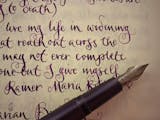 to death)
I live my life in widening
that reach out across the
may not ever complete
one but I give myself
Rainer Maria R